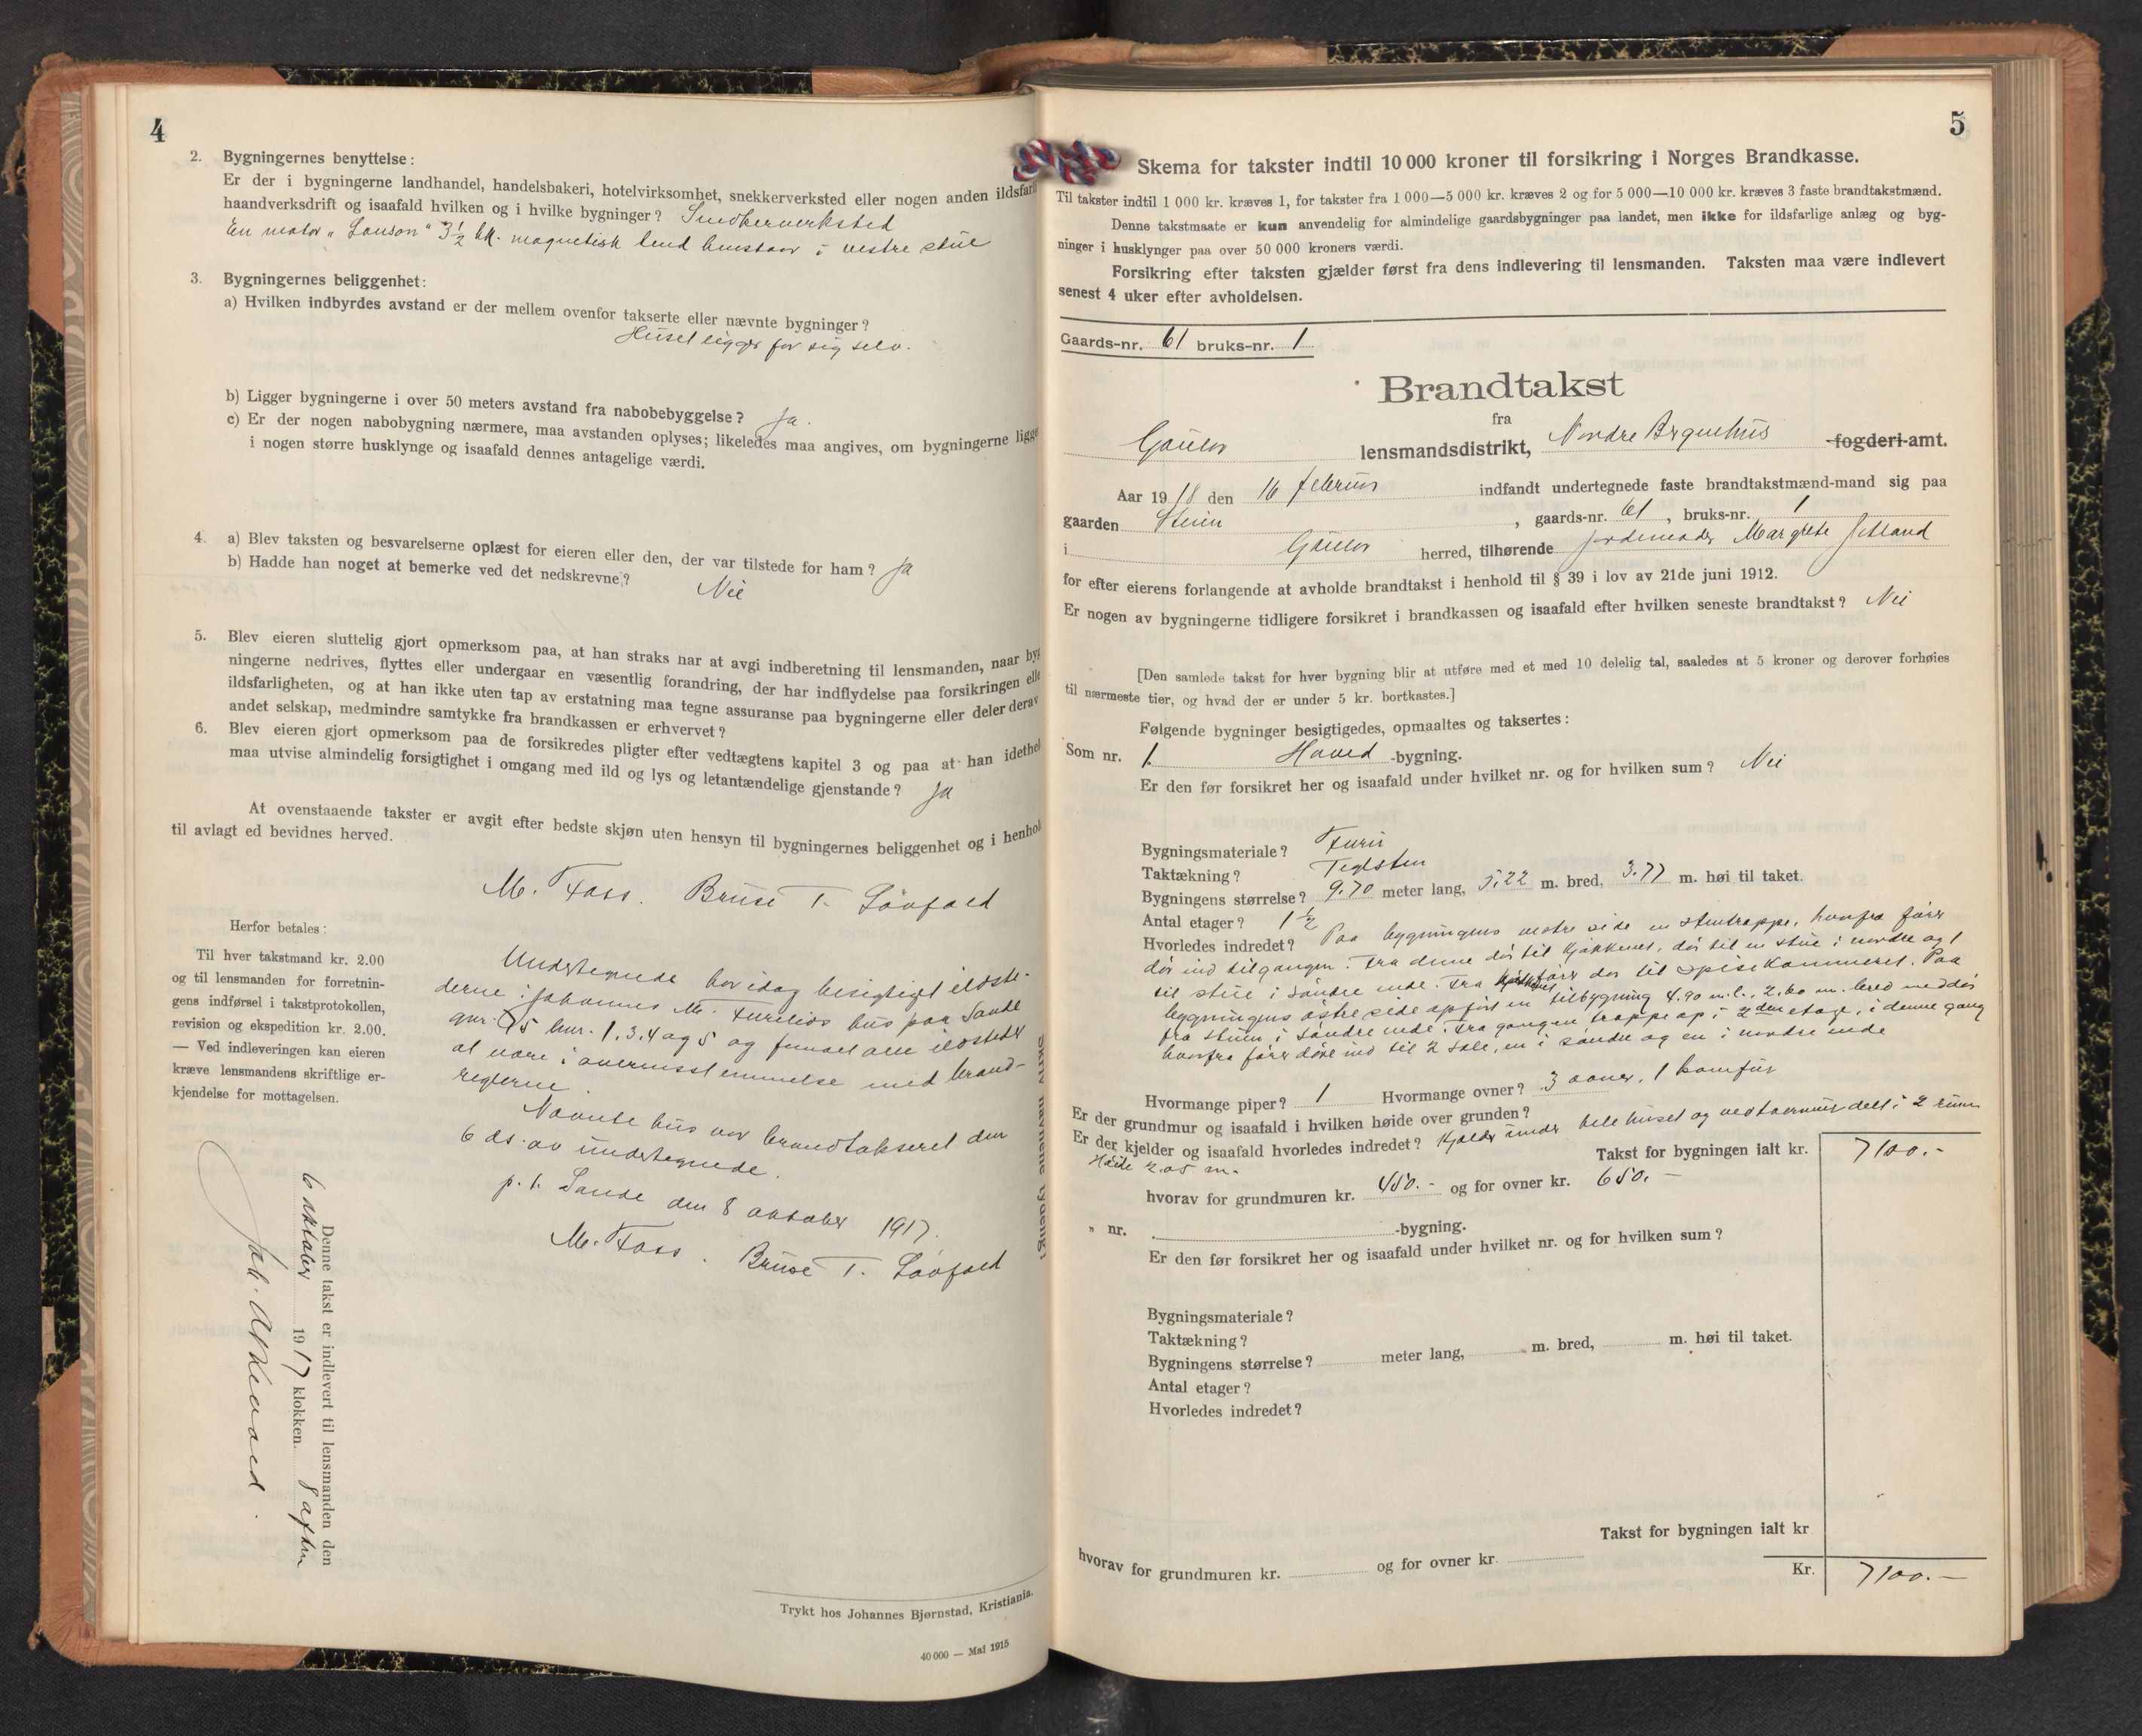 4
2. Bygningernes benyttelse:
Er der i bygningerne landhandel, handelsbakeri, hotelvirksomhet, snekkerverksted eller nogen anden ildsfarli
haandverksdrift og isaafald hvilken og i hvilke bygninger? Snedkerverksted
En motor „ 3½ hk. magnetisk tend henstaar i vestre stue
3. Bygningernes beliggenhet:
a) Hvilken indbyrdes avstand er der mellem ovenfor takserte eller nævnte bygninger?
Huset ligger for sig selv.
b) Ligger bygningerne i over 50 meters avstand fra nabobebyggelse? Ja.
c) Er der nogen nabobygning nærmere, maa avstanden oplyses; likeledes maa angives, om bygningerne ligge
i nogen større husklynge og isaafald dennes antagelige værdi.
4. a) Blev taksten og besvarelserne oplæst for eieren eller den, der var tilstede for ham? Ja
b) Hadde han noget at bemerke ved det nedskrevne? Nei
5. Blev eieren sluttelig gjort opmerksom paa, at han straks har at avgi indberetning til lensmanden, naar byg
ningerne nedrives, flyttes eller undergaar en væsentlig forandring, der har indflydelse paa forsikringen elle
ildsfarligheten, og at han ikke uten tap av erstatning maa tegne assuranse paa bygningerne eller deler derav
andet selskap, medmindre samtykke fra brandkassen er erhvervet?
6. Blev eieren gjort opmerksom paa de forsikredes pligter efter vedtægtens kapitel 3 og paa at han idethel
maa utvise almindelig forsigtighet i omgang med ild og lys og letantændelige gjenstande? Ja
At ovenstaaende takster er avgit efter bedste skjøn uten hensyn til bygningernes beliggenhet og i henhol
til avlagt ed bevidnes herved.
M. Foss. Bruse T. Løvfald
Herfor betales:
Til hver takstmand kr. 2.00
og til lensmanden for forretnin-
gens indførsel i takstprotokollen,
revision og ekspedition kr. 2.00.
— Ved indleveringen kan eieren
kræve lensmandens skriftlige er-
kjendelse for mottagelsen.
Undertegnede har idag besigtiget ildste-
derne i Johannes M. hus paa Sande
gnr. 75 bnr. 1, 3, 4 og 5 og fundet alle ildsteder
at være i overensstemmelse med brand-
reglerne.
Nævnte hus var brandtakseret den
6 ds. av undertegnede.
p. t. Sande den 8 oktober 1917.
M. Foss. Bruse T. Løvfald
Denne takst er indlevert til lensmanden den
6 oktober 1917 klokken 8 aften
Skriv navnene tydelig!
Trykt hos Johannes Bjørnstad, Kristiania.
40 000 — Mai 1915
5
Skema for takster indtil 10 000 kroner til forsikring i Norges Brandkasse.
Til takster indtil 1 000 kr. kræves 1, for takster fra 1 000—5 000 kr. kræves 2 og for 5 000—10 000 kr. kræves 3 faste brandtakstmænd.
Denne takstmaate er kun anvendelig for almindelige gaardsbygninger paa landet, men ikke for ildsfarlige anlæg og byg-
ninger i husklynger paa over 50 000 kroners værdi.
Forsikring efter taksten gjælder først fra dens indlevering til lensmanden. Taksten maa være indlevert
senest 4 uker efter avholdelsen.
Gaards-nr. 61 bruks-nr. 1
Brandtakst
fra
Gauler lensmandsdistrikt, Nordre Bergenhus fogderi-amt.
Aar 1918 den 16 februar indfandt undertegnede faste brandtakstmænd-mand sig paa
gaarden Steien, gaards-nr. 61, bruks-nr. 1
i Gauler herred, tilhørende jordemoder Margrete Jetland
for efter eierens forlangende at avholde brandtakst i henhold til § 39 i lov av 21de juni 1912.
Er nogen av bygningerne tidligere forsikret i brandkassen og isaafald efter hvilken seneste brandtakst? Nei
[Den samlede takst for hver bygning blir at utføre med et med 10 delelig tal, saaledes at 5 kroner og derover forhøies
til nærmeste tier, og hvad der er under 5 kr. bortkastes.]
Følgende bygninger besigtigedes, opmaaltes og taksertes:
Som nr. 1. Hoved -bygning.
Er den før forsikret her og isaafald under hvilket nr. og for hvilken sum? Nei
Bygningsmateriale? Furu
Taktækning? Teglsten
Bygningens størrelse? 9.70 meter lang, 5.22 m. bred, 3.77 m. høi til taket.
Antal etager? 1½
Hvorledes indredet? Paa bygningens vestre side en stentrappe, hvorfra fører
dør ind til gangen. Fra denne dør til kjøkkenet, dør til en stue i nordre og 1
til stue i søndre ende. Fra kjøkkenet fører dør til spisekammeret. Paa
bygningens østre side opført en tilbygning 4.90 m. l., 2.60 m. bred med dør
fra stuen i søndre ende. Fra gangen trappe op i 2den etage, i denne gang
hvorfra fører døre ind til 2 sale, en i søndre og en i nordre ende
Hvormange piper? 1 Hvormange ovner? 3 ovner, 1 komfur
Er der grundmur og isaafald i hvilken høide over grunden?
Er der kjelder og isaafald hvorledes indredet? Kjelder under hele huset og ved tvermur delt i 2 rum
Høide 2.05 m.
Takst for bygningen ialt kr. 7100.-
hvorav for grundmuren kr. 450.- og for ovner kr. 650.-
„ nr. -bygning.
Er den før forsikret her og isaafald under hvilket nr. og for hvilken sum?
Bygningsmateriale?
Taktækning?
Bygningens størrelse? meter lang, m. bred, m. høi til taket.
Antal etager?
Hvorledes indredet?
Takst for bygningen ialt kr
hvorav for grundmuren kr. og for ovner kr.
Kr. 7100.—